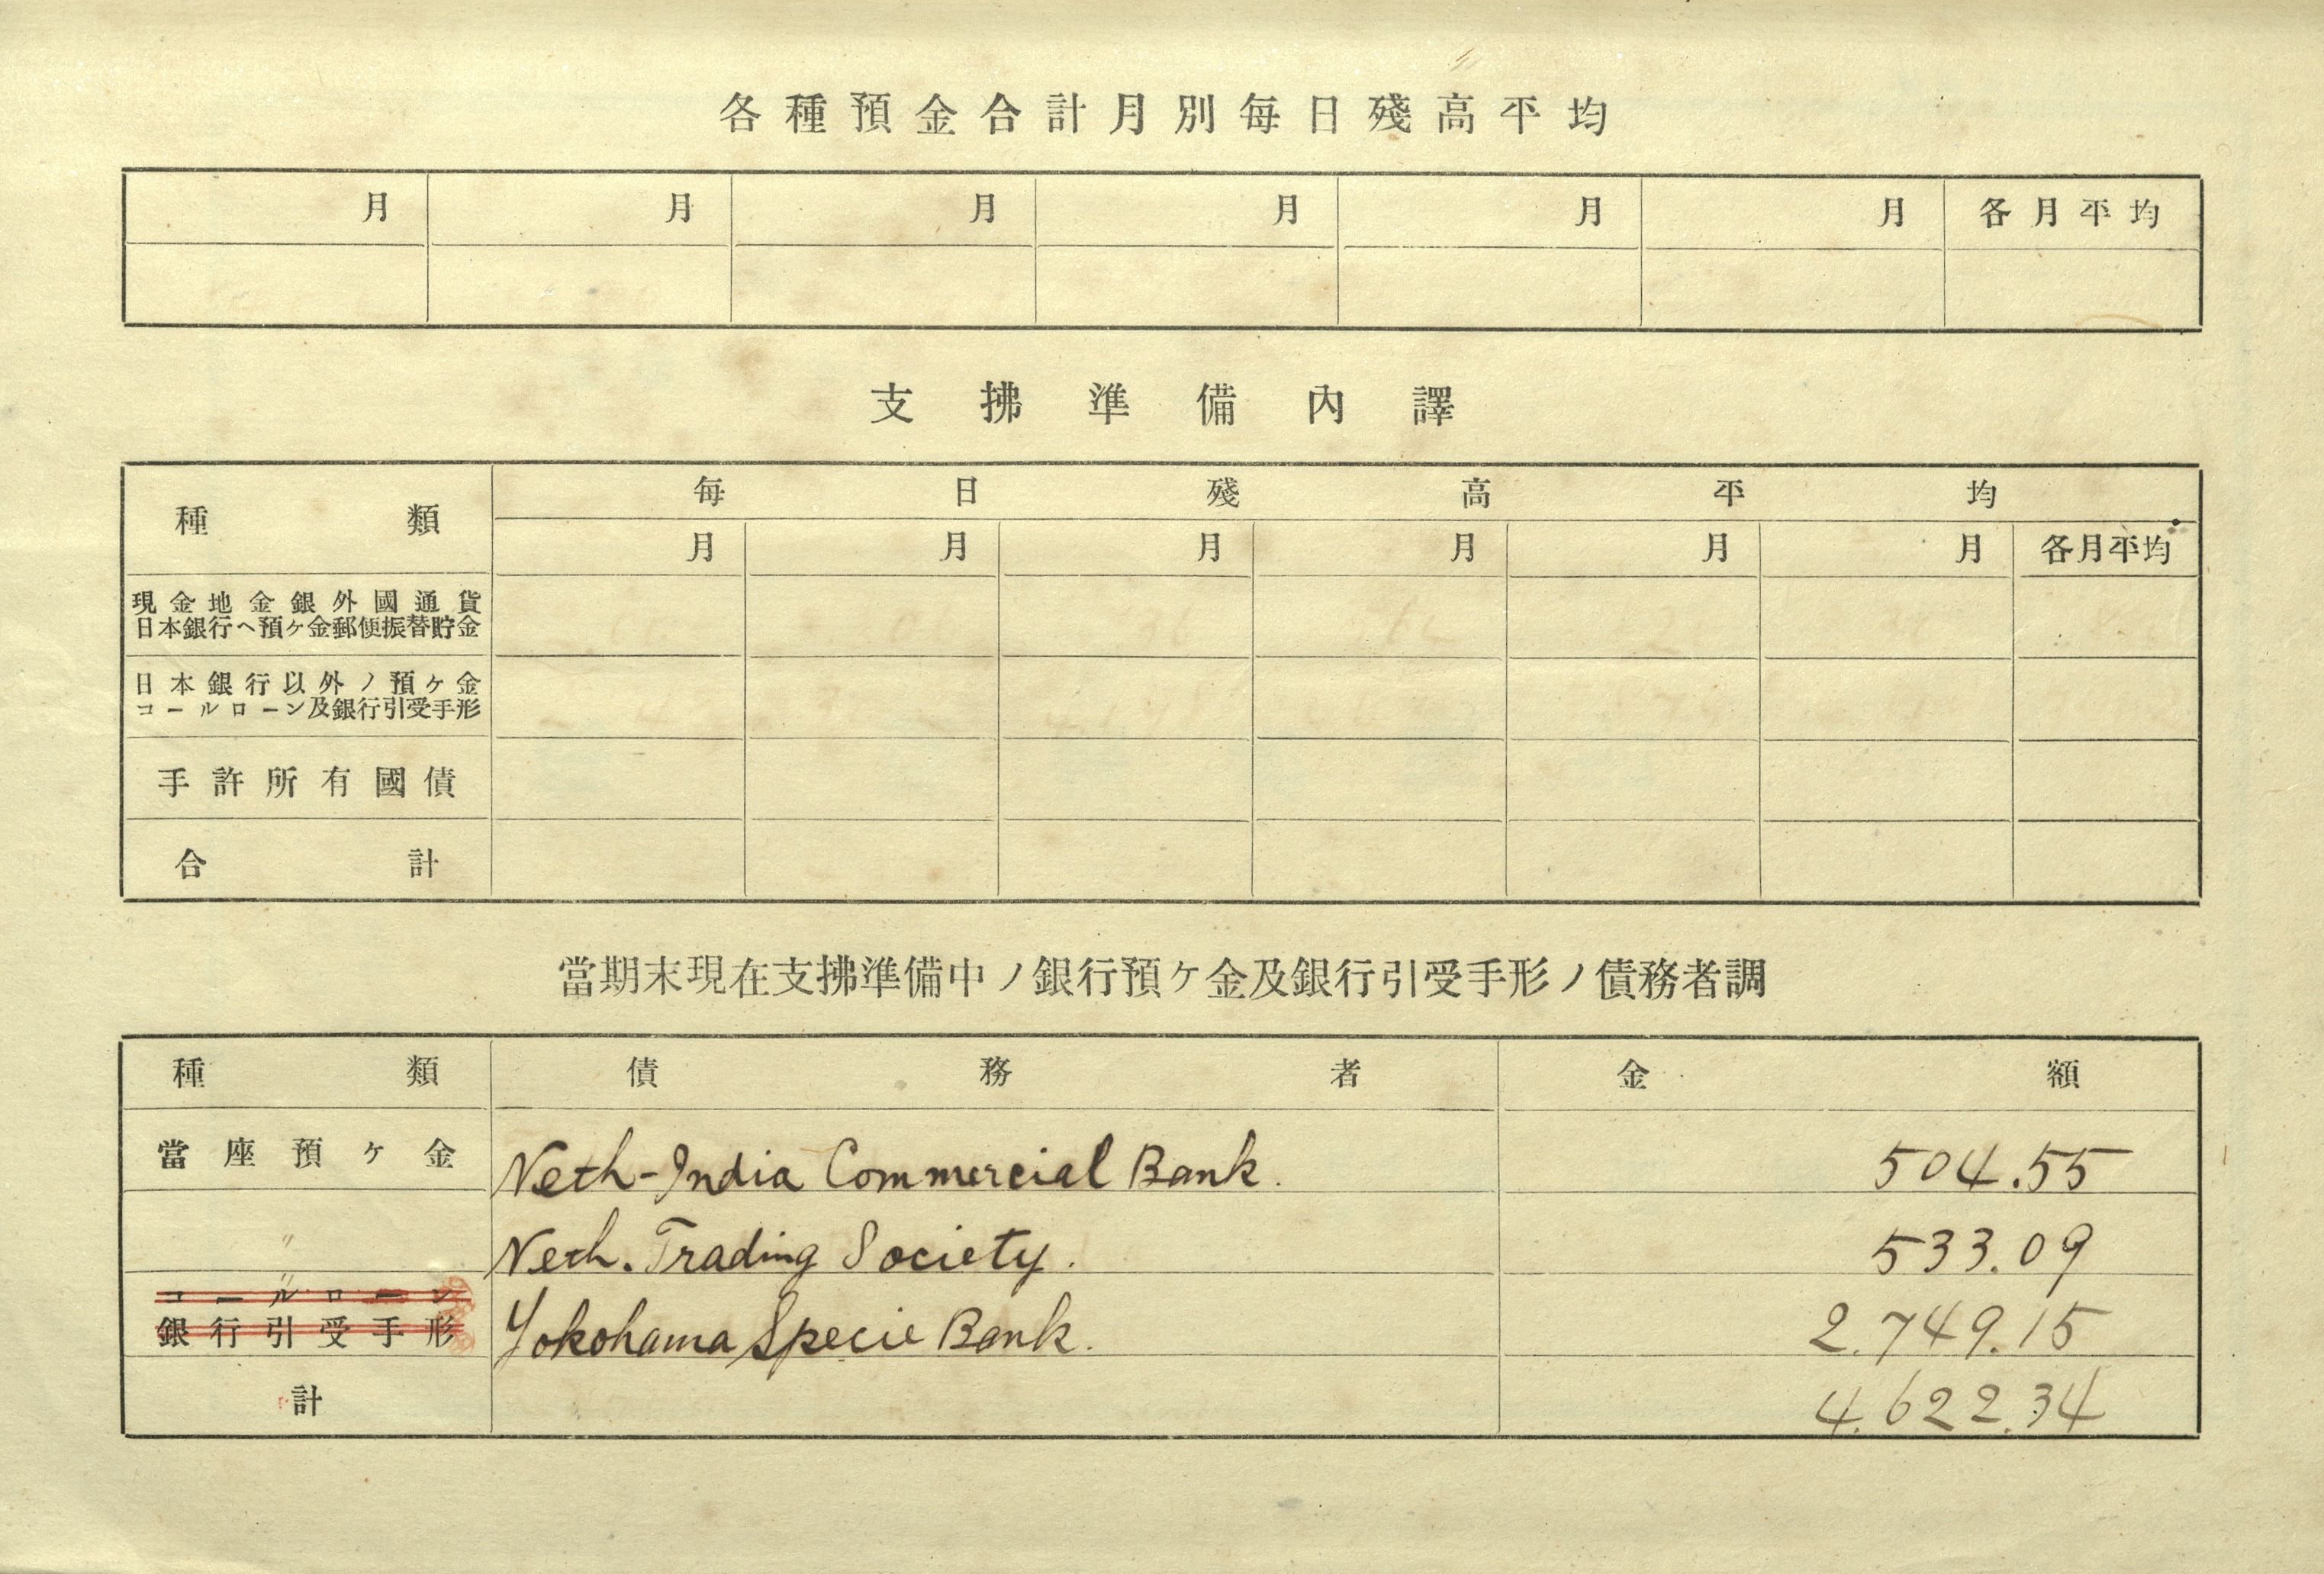 各種預金合計月別每日殘高平均
月 月 月 月 月 月 各月平均
支拂準備內譯
種類 每日殘高平均
月 月 月 月 月 月 各月平均
現金地金銀外國通貨
日本銀行ヘ預ケ金郵便振替貯金
日本銀行以外ノ預ケ金
コールローン及銀行引受手形
手許所有國債
合計
當期末現在支拂準備中ノ銀行預ケ金及銀行引受手形ノ債務者調
種類 債務者 金額
當座預ケ金 Neth-India Commercial Bank. 504.55
〃 Neth. Trading Society. 533.09
〃
コールローン
銀行引受手形 Yokohama Specie Bank. 2.749.15
計 4.622.34